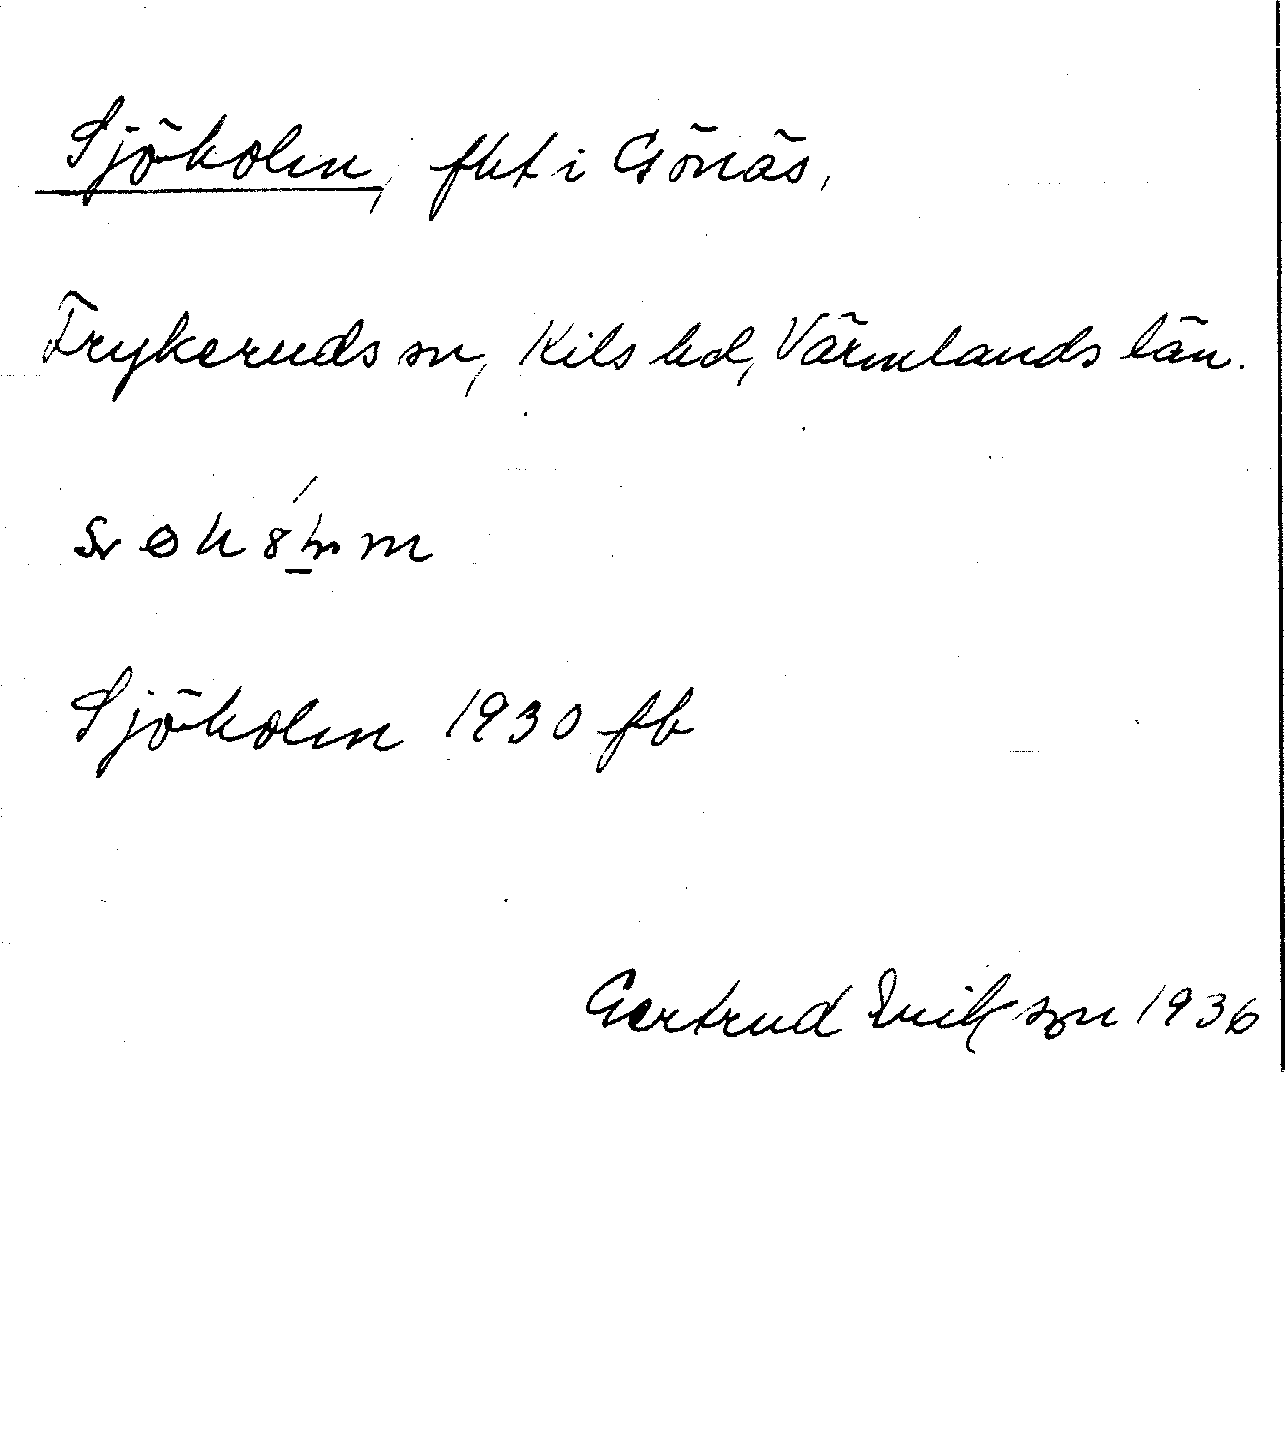 Sjöholm, fht i Gönäs,
Frykeruds sn, Kils hd, Värmlands län.
Sjöholm 1930 fb
Gertrud Erikson 1936